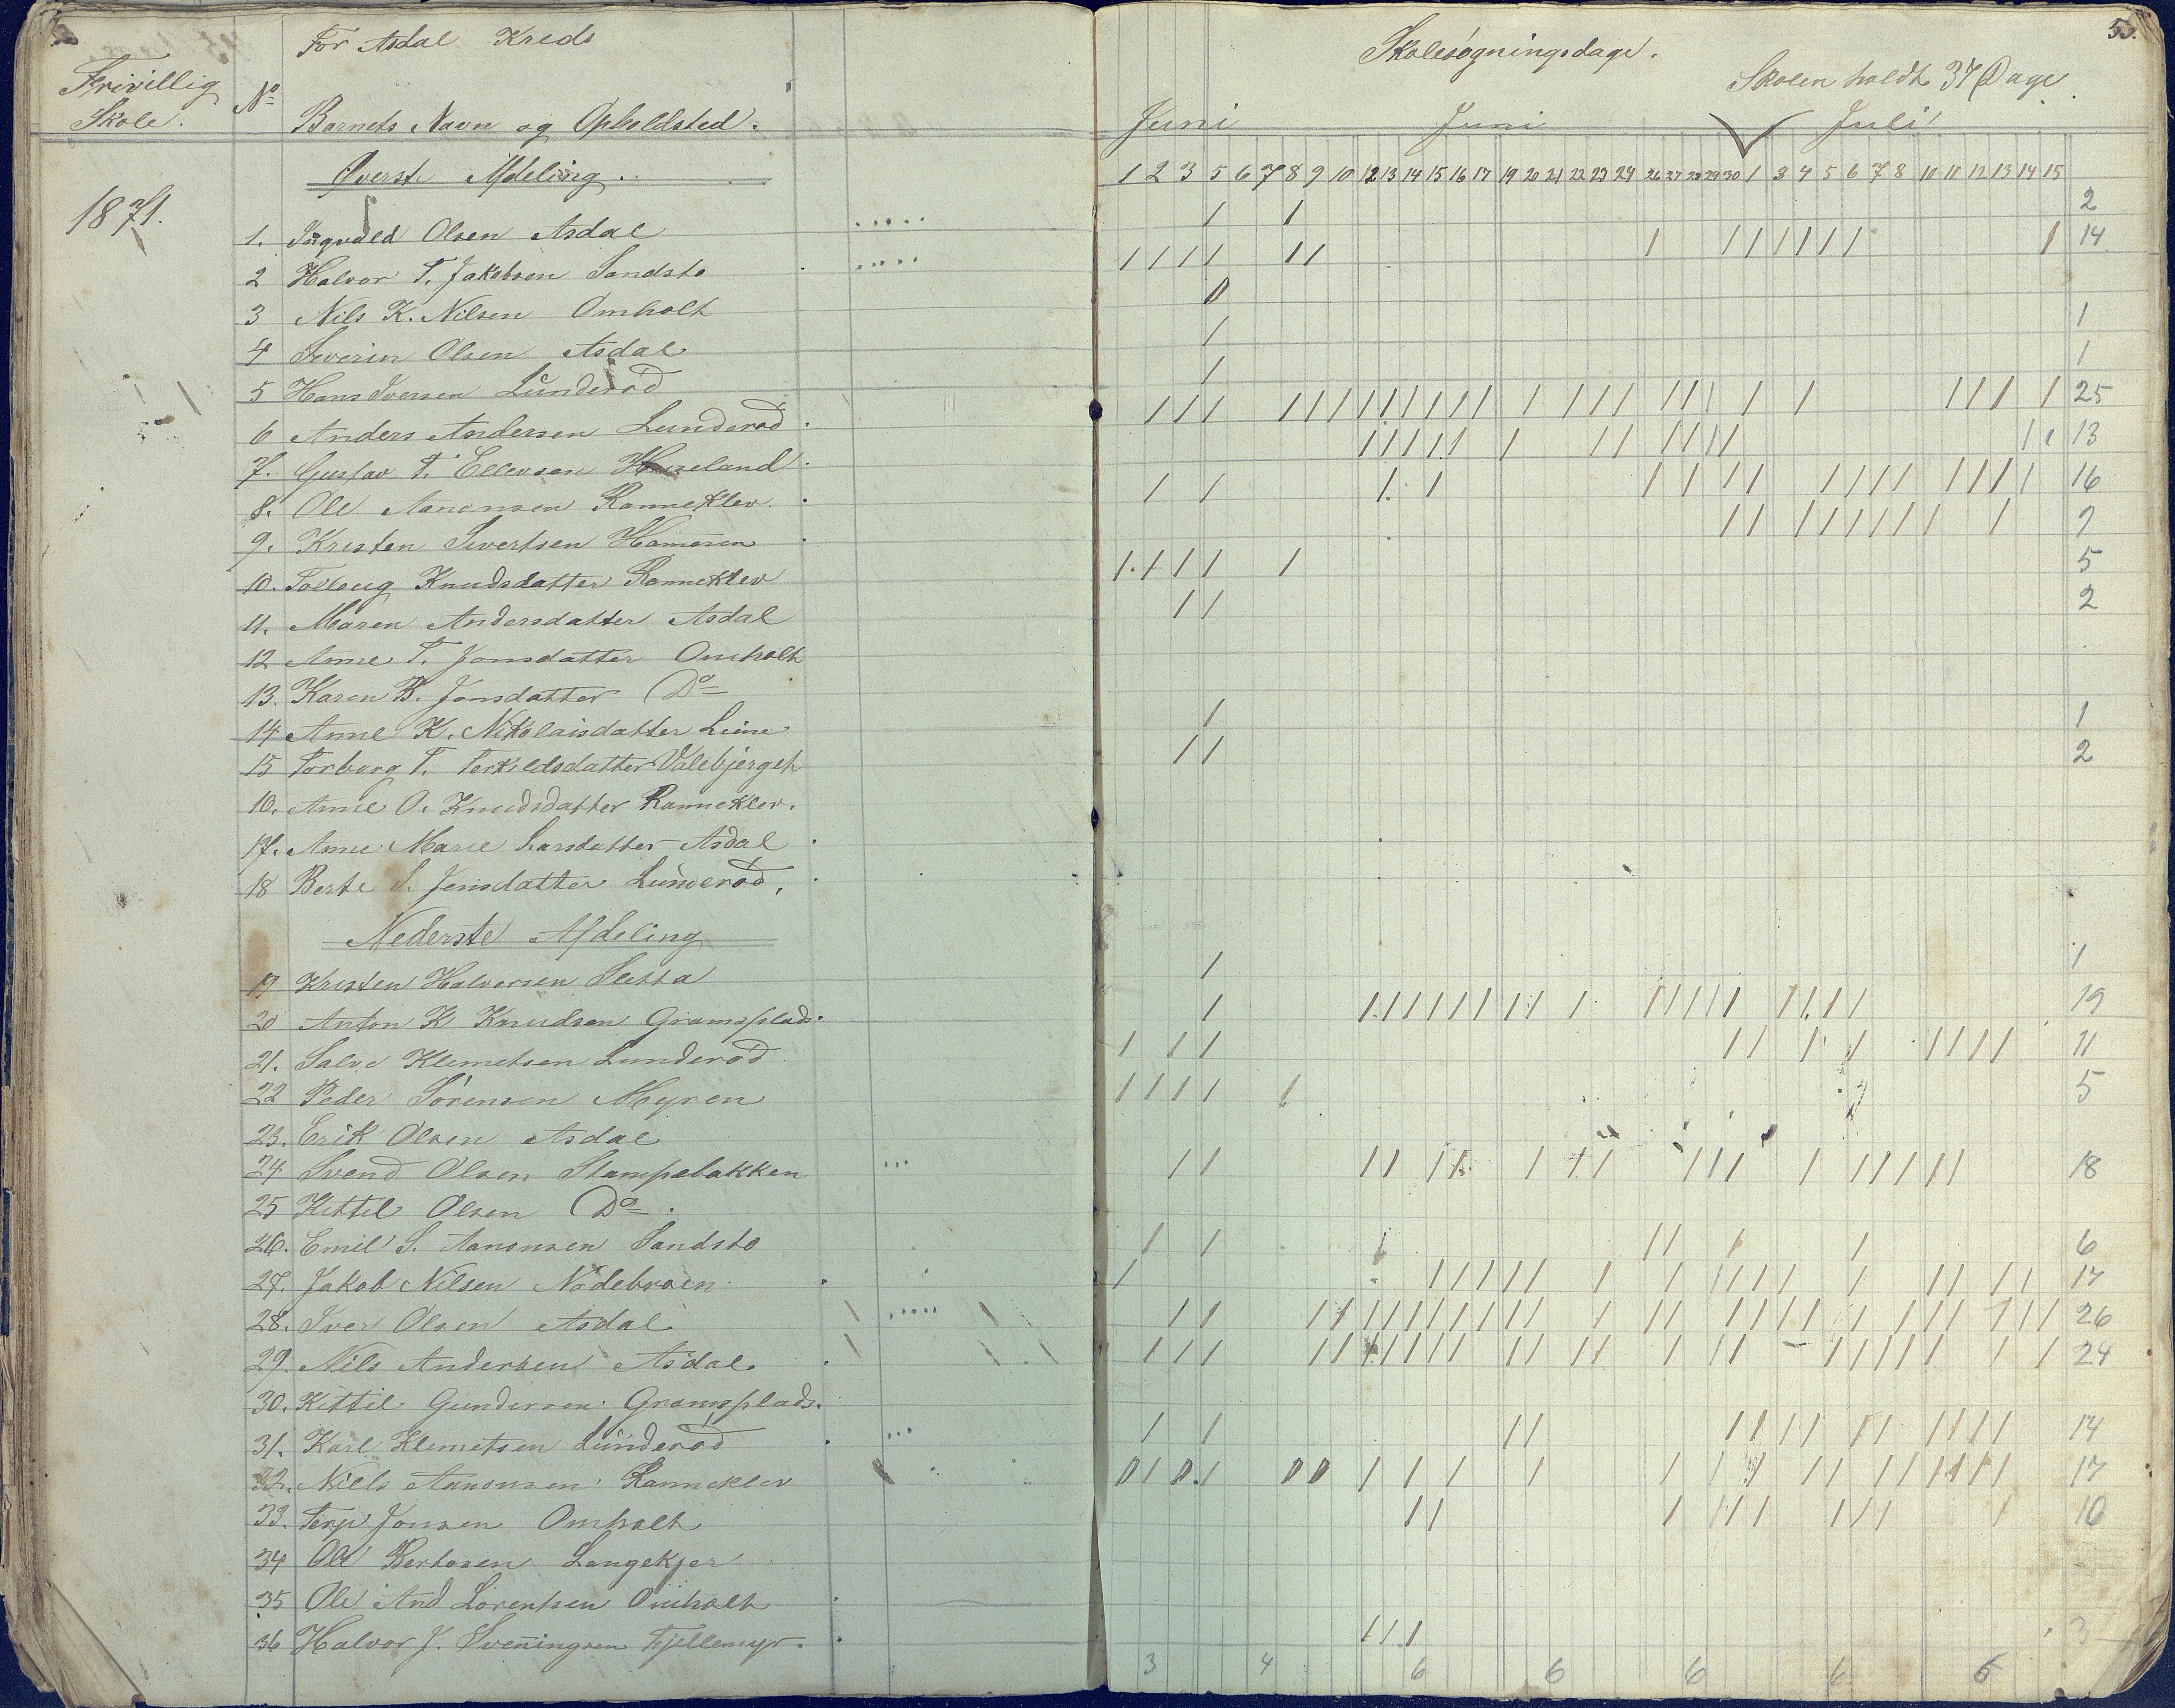 For Asdal Kreds
Frivillig Skole.
No
Barnets Navn og Opholdsted.
Skolesøgningsdage.
55.
Skolen holdt 37 Dage.
Juni Juni Juli
Øverste Afdeling.
1 2 3 5 6 7 8 9 10 12 13 14 15 16 17 19 20 21 22 23 24 26 27 28 29 30 1 3 4 5 6 7 8 10 11 12 13 14 15
1871.
1. Ingvald Olsen Asdal 2
2 Halvor T. Jakobsen Sandstø 14
3 Nils K. Nilsen Omholt 0
4 Severin Olsen Asdal 1
5 Hans Iversen Lunderød 1
6 Anders Andersen Lunderød 25
7. Gustav T. Ellevsen Haseland 13
8. Ole Aanonsen Ranneklev. 16
9. Kristen Sivertsen Hameren 9
10. Tolloug Knudsdatter Ranneklev 5
11. Maren Andersdatter Asdal 2
12 Anne T. Jonsdatter Omholt
13. Karen B. Jonsdatter Do
14 Anne K. Nikolaisdatter Liene 1
15 Torborg T. Terkildsdatter Valebjerget 2
16. Anne O. Knudsdatter Ranneklev.
17. Anne Marie Larsdatter Asdal
18 Berte S. Jensdatter Lunderød.
Nederste Afdeling
19 Kristen Halvorsen Sletta 1
20 Anton K Knudsen Gramsplads. 19
21. Salve Klemetsen Lunderød 11
22 Peder Sørensen Myren 5
23. Erik Olsen Asdal
24 Svend Olsen Stampebakken 18
25 Kittil Olsen Do.
26. Emil S. Aanonsen Sandstø 6
27. Jakob Nilsen Nødebroen 17
28. Iver Olsen Asdal. 26
29. Nils Andersen Asdal. 24
30. Kittil Gundersen Gramsplads.
31. Karl Klemetsen Lunderød 14
32. Niels Aanonsen Ranneklev 17
33. Terje Jonsen Omholt 10
34 Ole Bertosen Langekjer
35 Ole And Lorentsen Omholt
36 Halvor J. Sveningsen Fjellemyr. 3
3 4 6 6 6 6 6